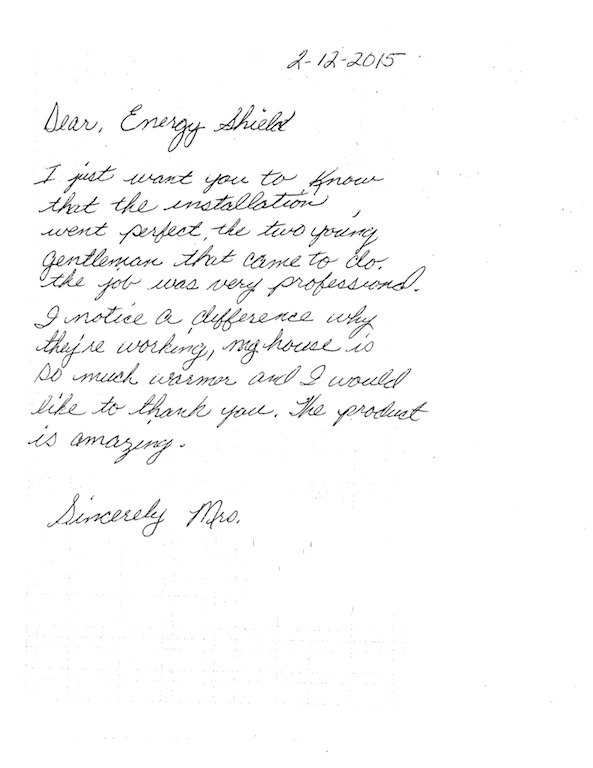 2-12-2015
Dear, Energy Shield
I just want you to know
that the installation
went perfect, the two young
gentleman that came to do.
the job was very professional.
I notice a difference why
they're working, my house is
so much warmer and I would
like to thank you. The product
is amazing.
Sincerely Mrs.